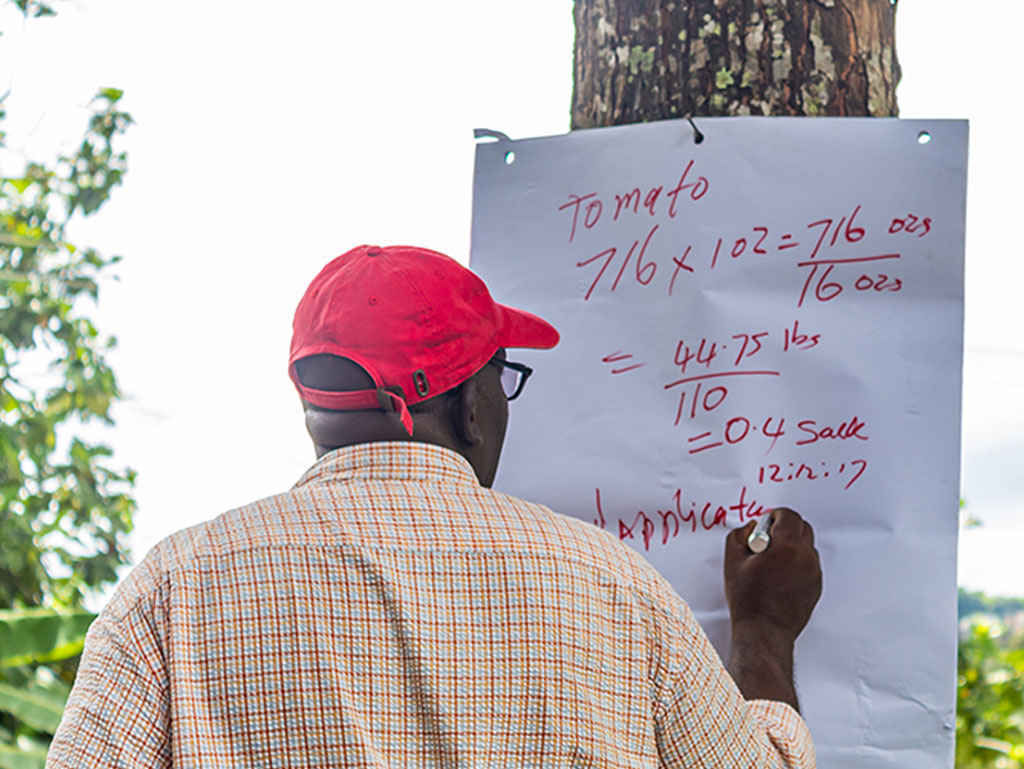 Tomato
716 x 102 = 716 ozs
16 ozs
= 44.75 lbs
110
= 0.4 Sack
12:12:17
1 Applicat